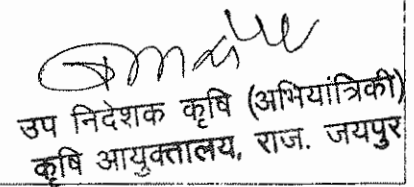 उप निदेशक कृषि (अभियांत्रिकी)
कृषि आयुक्तालय, राज. जयपुर